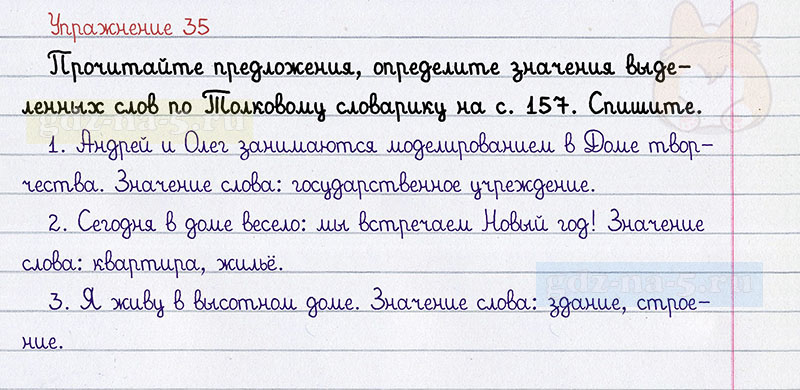 Упражнение 35
Прочитайте предложения, определите значения выде-
ленных слов по Толковому словарику на с. 157. Спишите.
1. Андрей и Олег занимаются моделированием в Доме твор-
чества. Значение слова: государственное учреждение.
2. Сегодня в доме весело: мы встречаем Новый год! Значение
слова: квартира, жильё.
gdz-na-s.ru
3. Я живу в высотном доме. Значение слова: здание, строе-
ние.